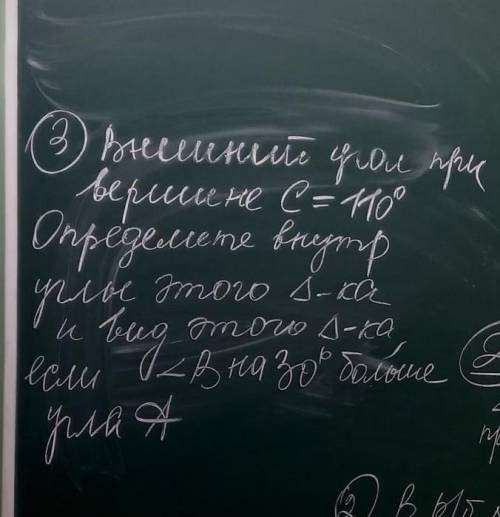 ③ Внешний угол при
вершине C = 110°
Определите внутр
углы этого Δ-ка
и вид этого Δ-ка,
если ∠B на 30° больше
угла A
2
пр
② В р/б